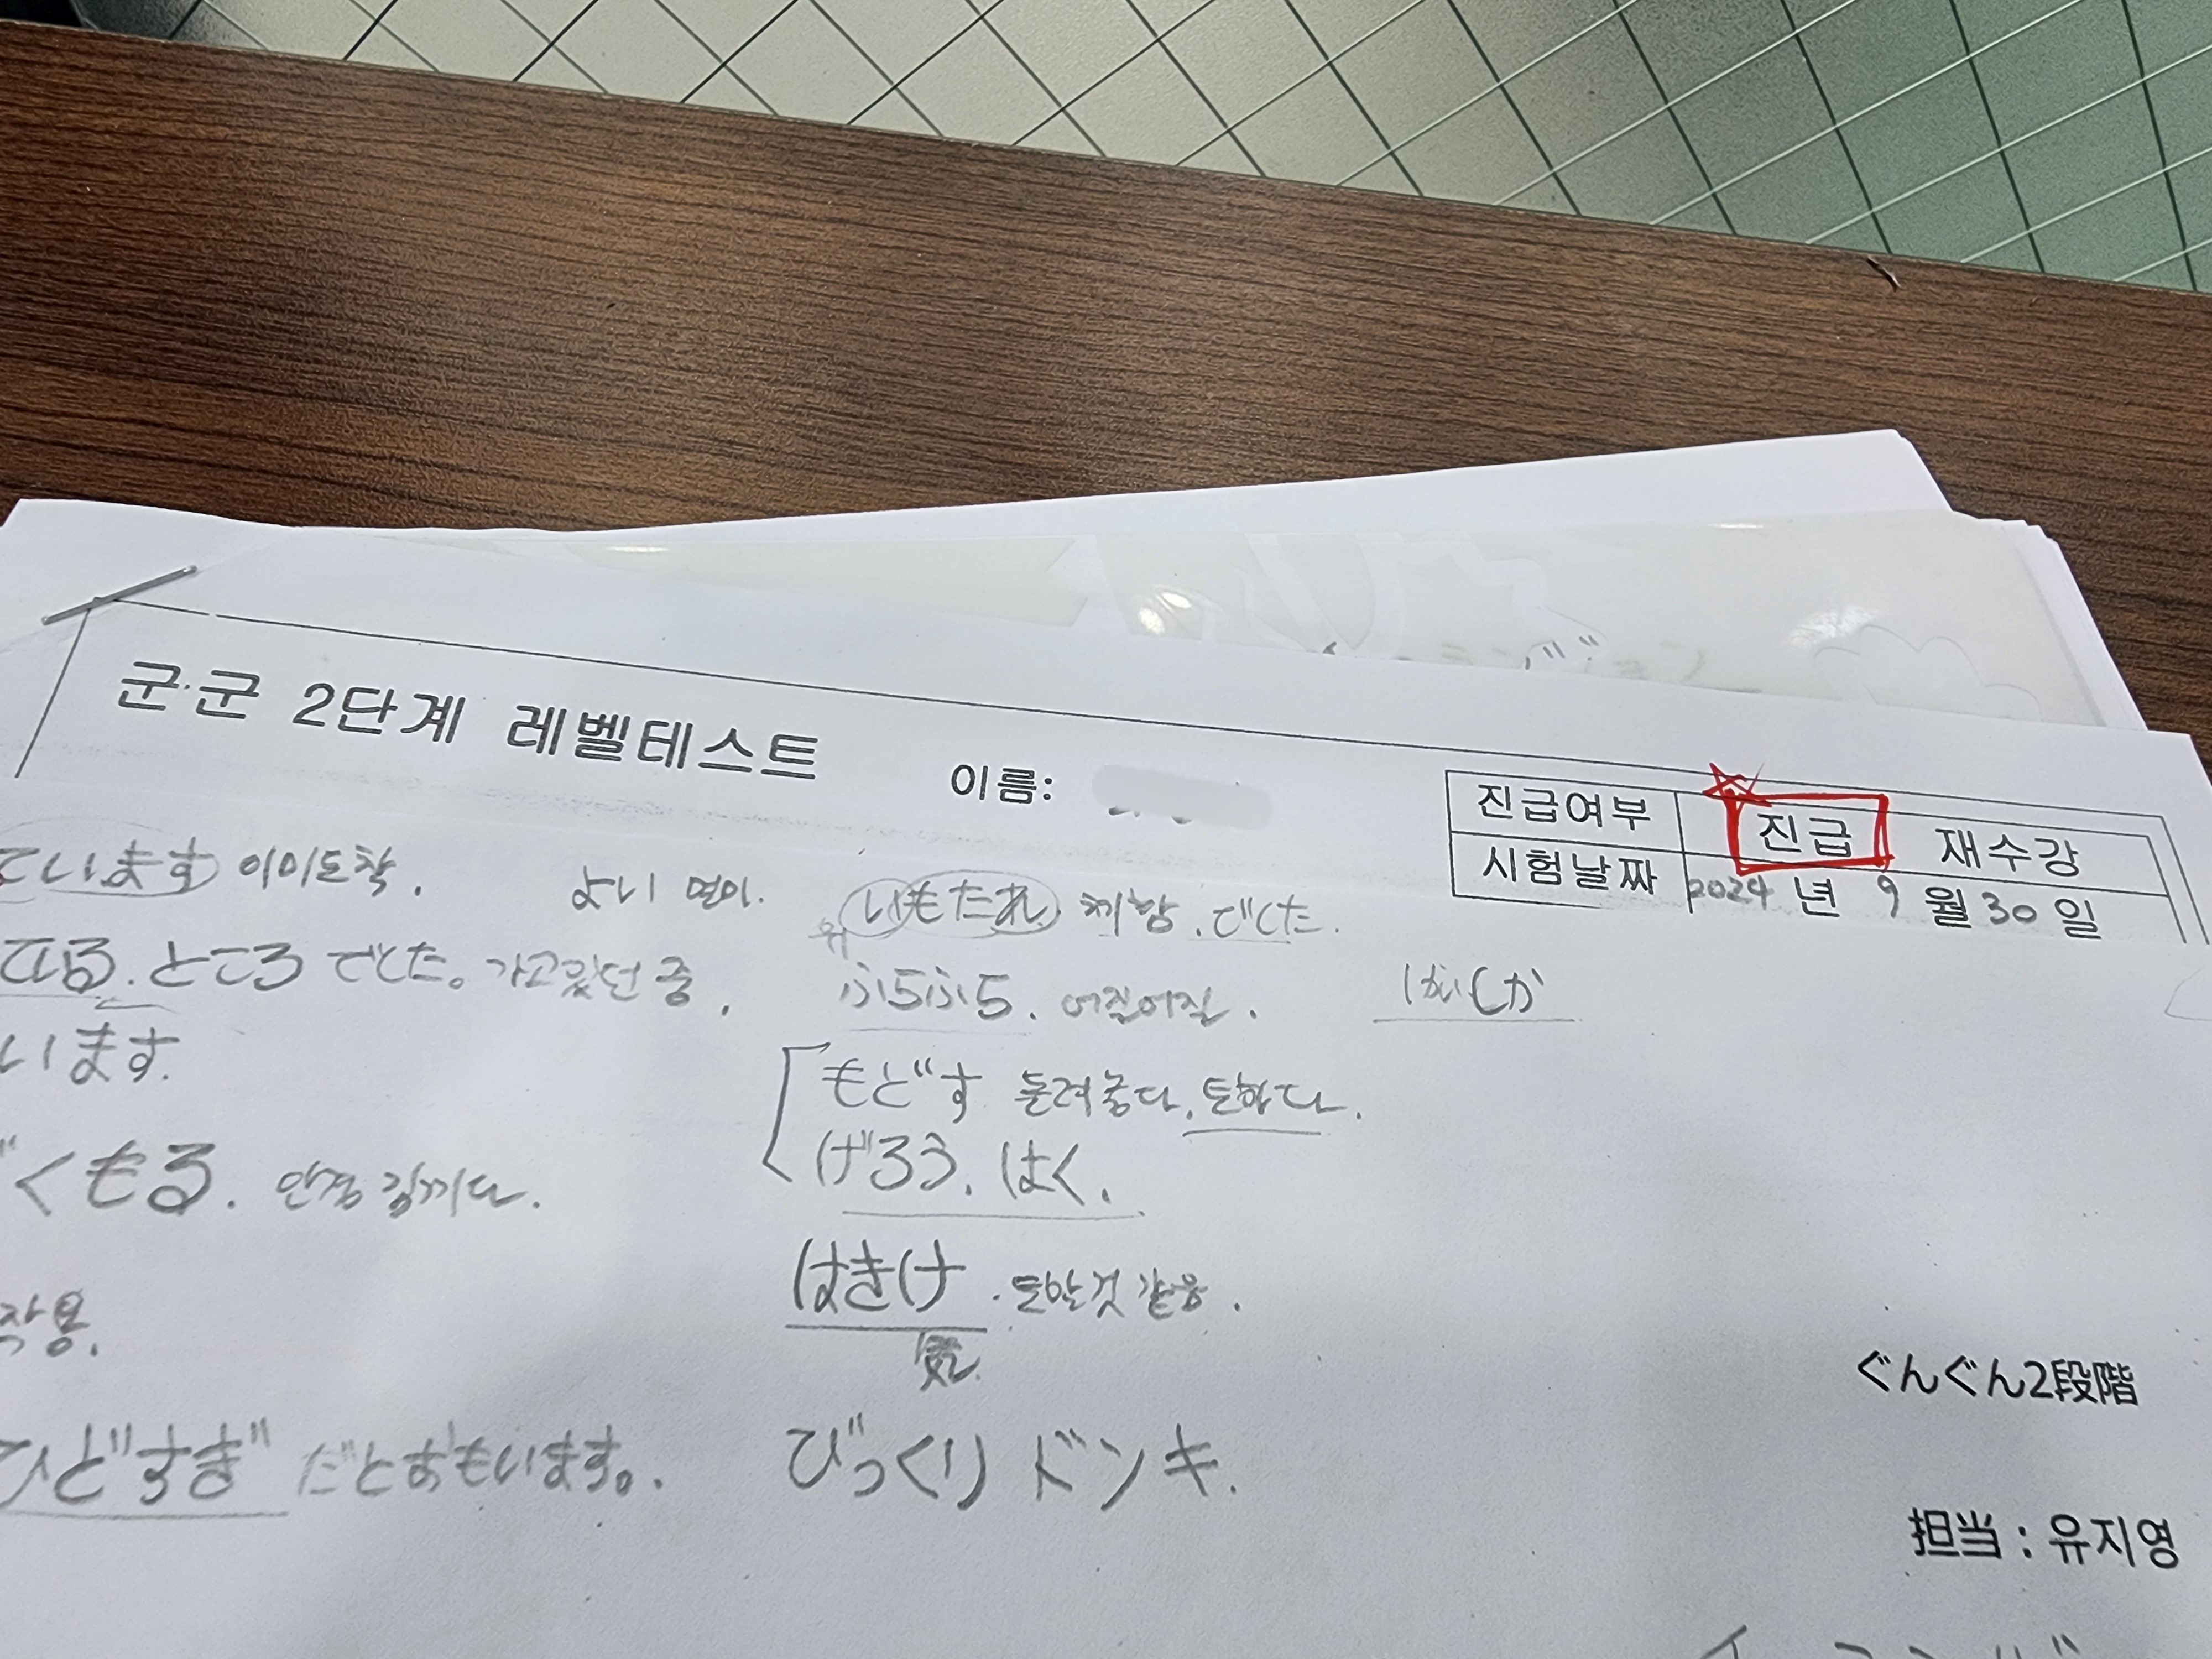 군·군 2단계 레벨테스트
이름:
진급여부 진급 재수강
시험날짜 2024 년 9 월 30 일
ています 이미도착.
よい 멀미.
いもたれ 체함. でした.
위
てる. ところ でした。 가고있던 중.
ふらふら. 어질어질.
います.
もどす 돌려놓다. 토하다.
げろう. はく.
くもる. 안경 김끼다.
はきけ. 토할것 같음.
気
작용.
ひどすぎ だとおもいます。.
びっくり ドンキ.
ぐんぐん2段階
担当 : 유지영